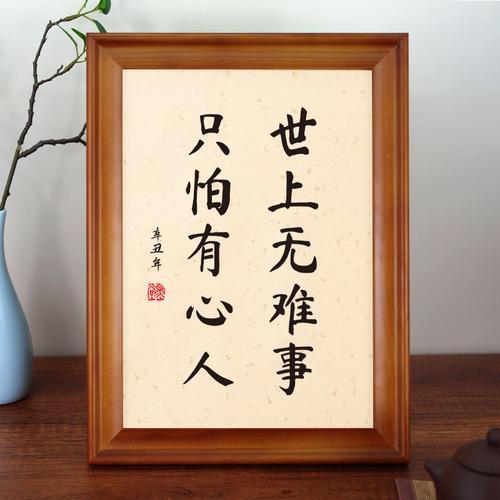 世上无难事
只怕有心人
辛丑年